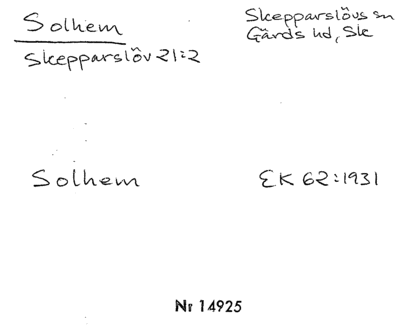 Solhem
Skepparslöv 21:2
Skepparslövs sn
Gärds hd, Sk
Solhem
EK 62:1931
Nr 14925